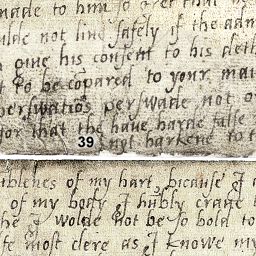 made to him so ever that
culde not liue safely if the adm
giue his consent to his dethe
t to be copared to your mai
perswatiõs perswade not o
for that the haue harde false
39 not harkene to t
iblenes of my hart, bicause I a
of my body I hũbly craue t
he I wolde not be so bold to
fe most clere as I knowe my